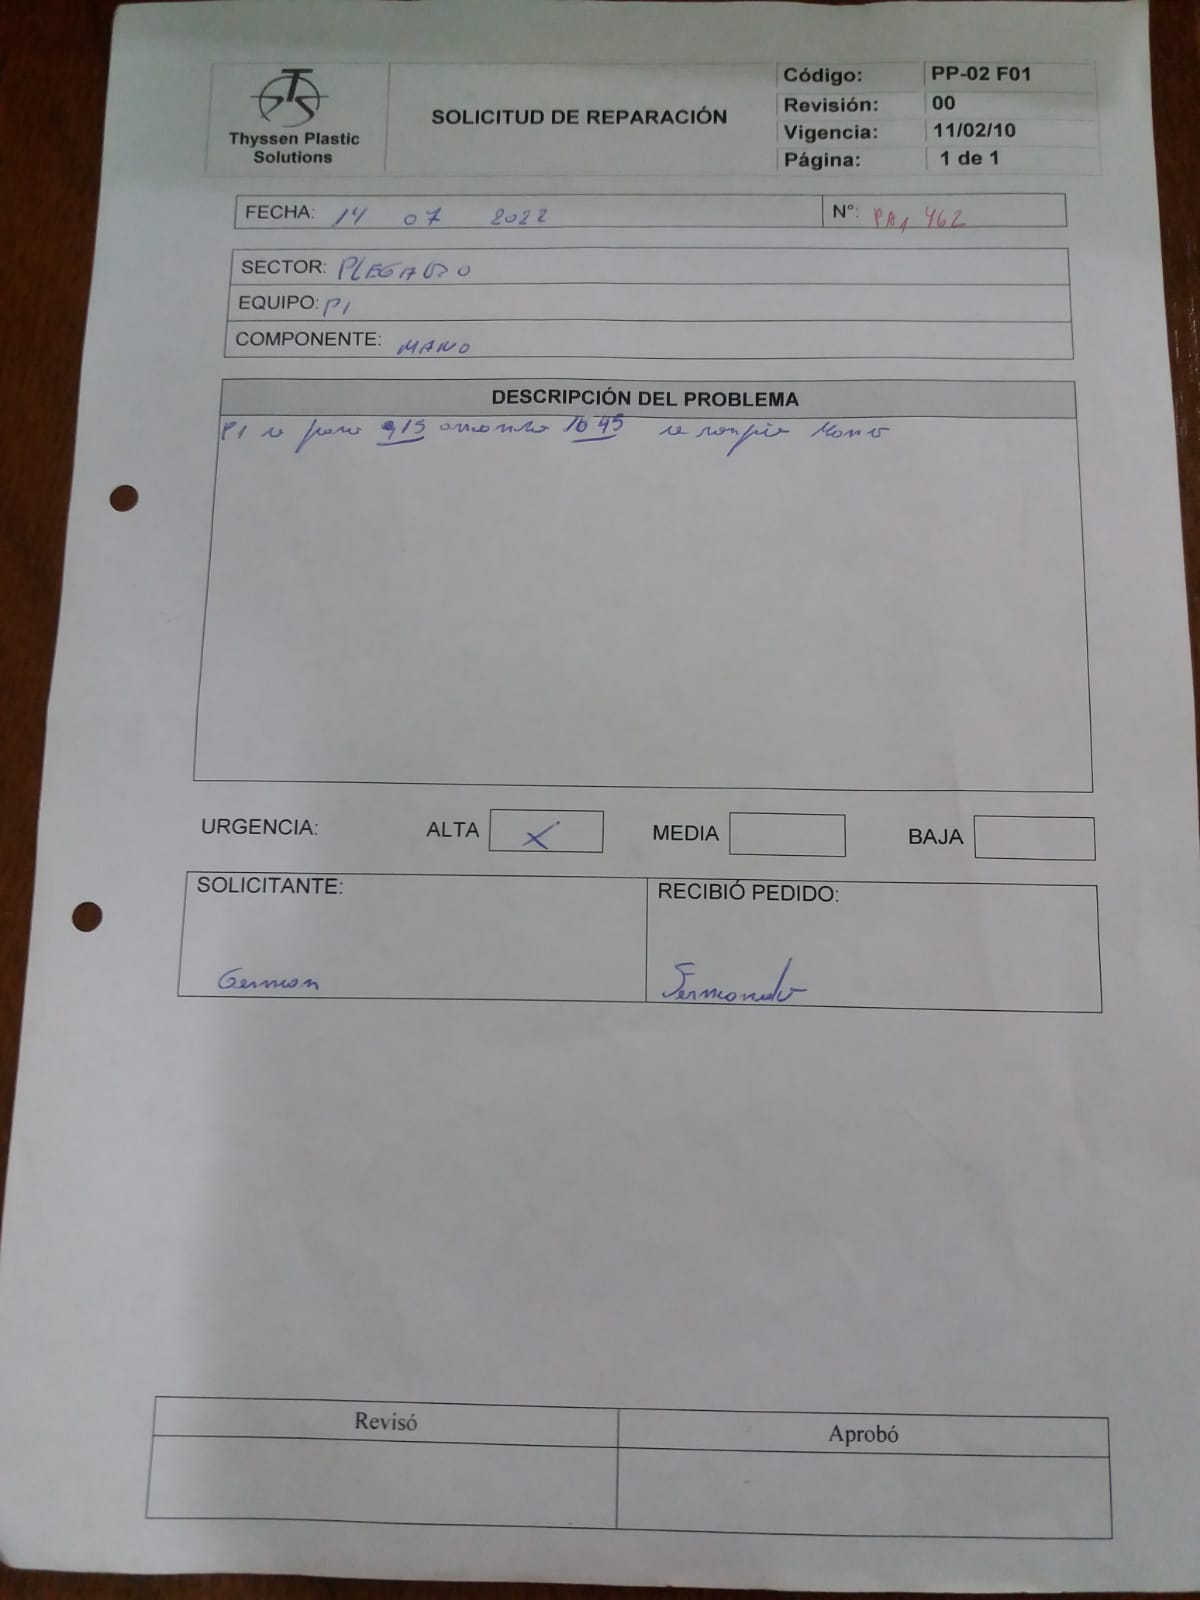 Thyssen Plastic
Solutions
SOLICITUD DE REPARACIÓN
Código: PP-02 F01
Revisión: 00
Vigencia: 11/02/10
Página: 1 de 1
FECHA: 14 07 2022 N°: PA1 462
SECTOR: PLEGADO
EQUIPO: P1
COMPONENTE: MANO
DESCRIPCIÓN DEL PROBLEMA
P1 se paro 915 1045 se rompio Mano
URGENCIA: ALTA X MEDIA BAJA
SOLICITANTE: RECIBIÓ PEDIDO:
German Fernando
Revisó Aprobó